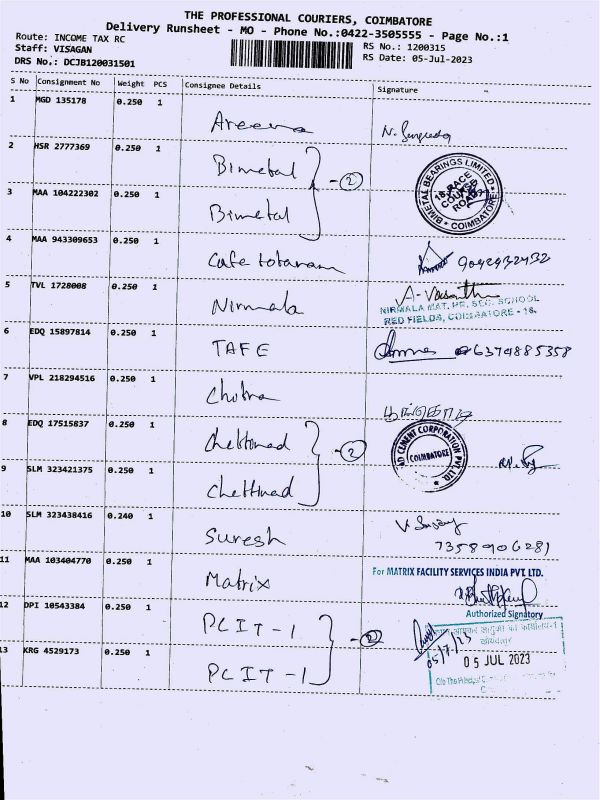 THE PROFESSIONAL COURIERS, COIMBATORE
Delivery Runsheet - MO - Phone No.:0422-3505555 - Page No.:1
Route: INCOME TAX RC
RS No.: 1200315
Staff: VISAGAN
RS Date: 05-Jul-2023
DRS No.: DCJB120031501
S No Consignment No Weight PCS Consignee Details Signature
1 MGD 135178 0.250 1
2 HSR 2777369 0.250 1 Bimetal
BIMETAL BEARINGS LIMITED
18, RACE COURSE ROAD
COIMBATORE
3 MAA 104222302 0.250 1 Bimetal
2
4 MAA 943309653 0.250 1 Cafe totaram
5 TVL 1728008 0.250 1 Nirmala
NIRMALA MAT. HR. SEC. SCHOOL
RED FIELDS, COIMBATORE - 18.
6 EDQ 15897814 0.250 1 TAFE 6374885358
7 VPL 218294516 0.250 1 Chitra
8 EDQ 17515837 0.250 1 Chettinad
CEMENT CORPORATION PVT. LTD.
COIMBATORE
9 SLM 323421375 0.250 1 Chettinad
2
10 SLM 323438416 0.240 1 Suresh
7358906281
11 MAA 103404770 0.250 1 Matrix
For MATRIX FACILITY SERVICES INDIA PVT. LTD.
Authorized Signatory
12 DPI 10543384 0.250 1 PCIT-1
2
05/7/23
05 JUL 2023
13 KRG 4529173 0.250 1 PCIT-1